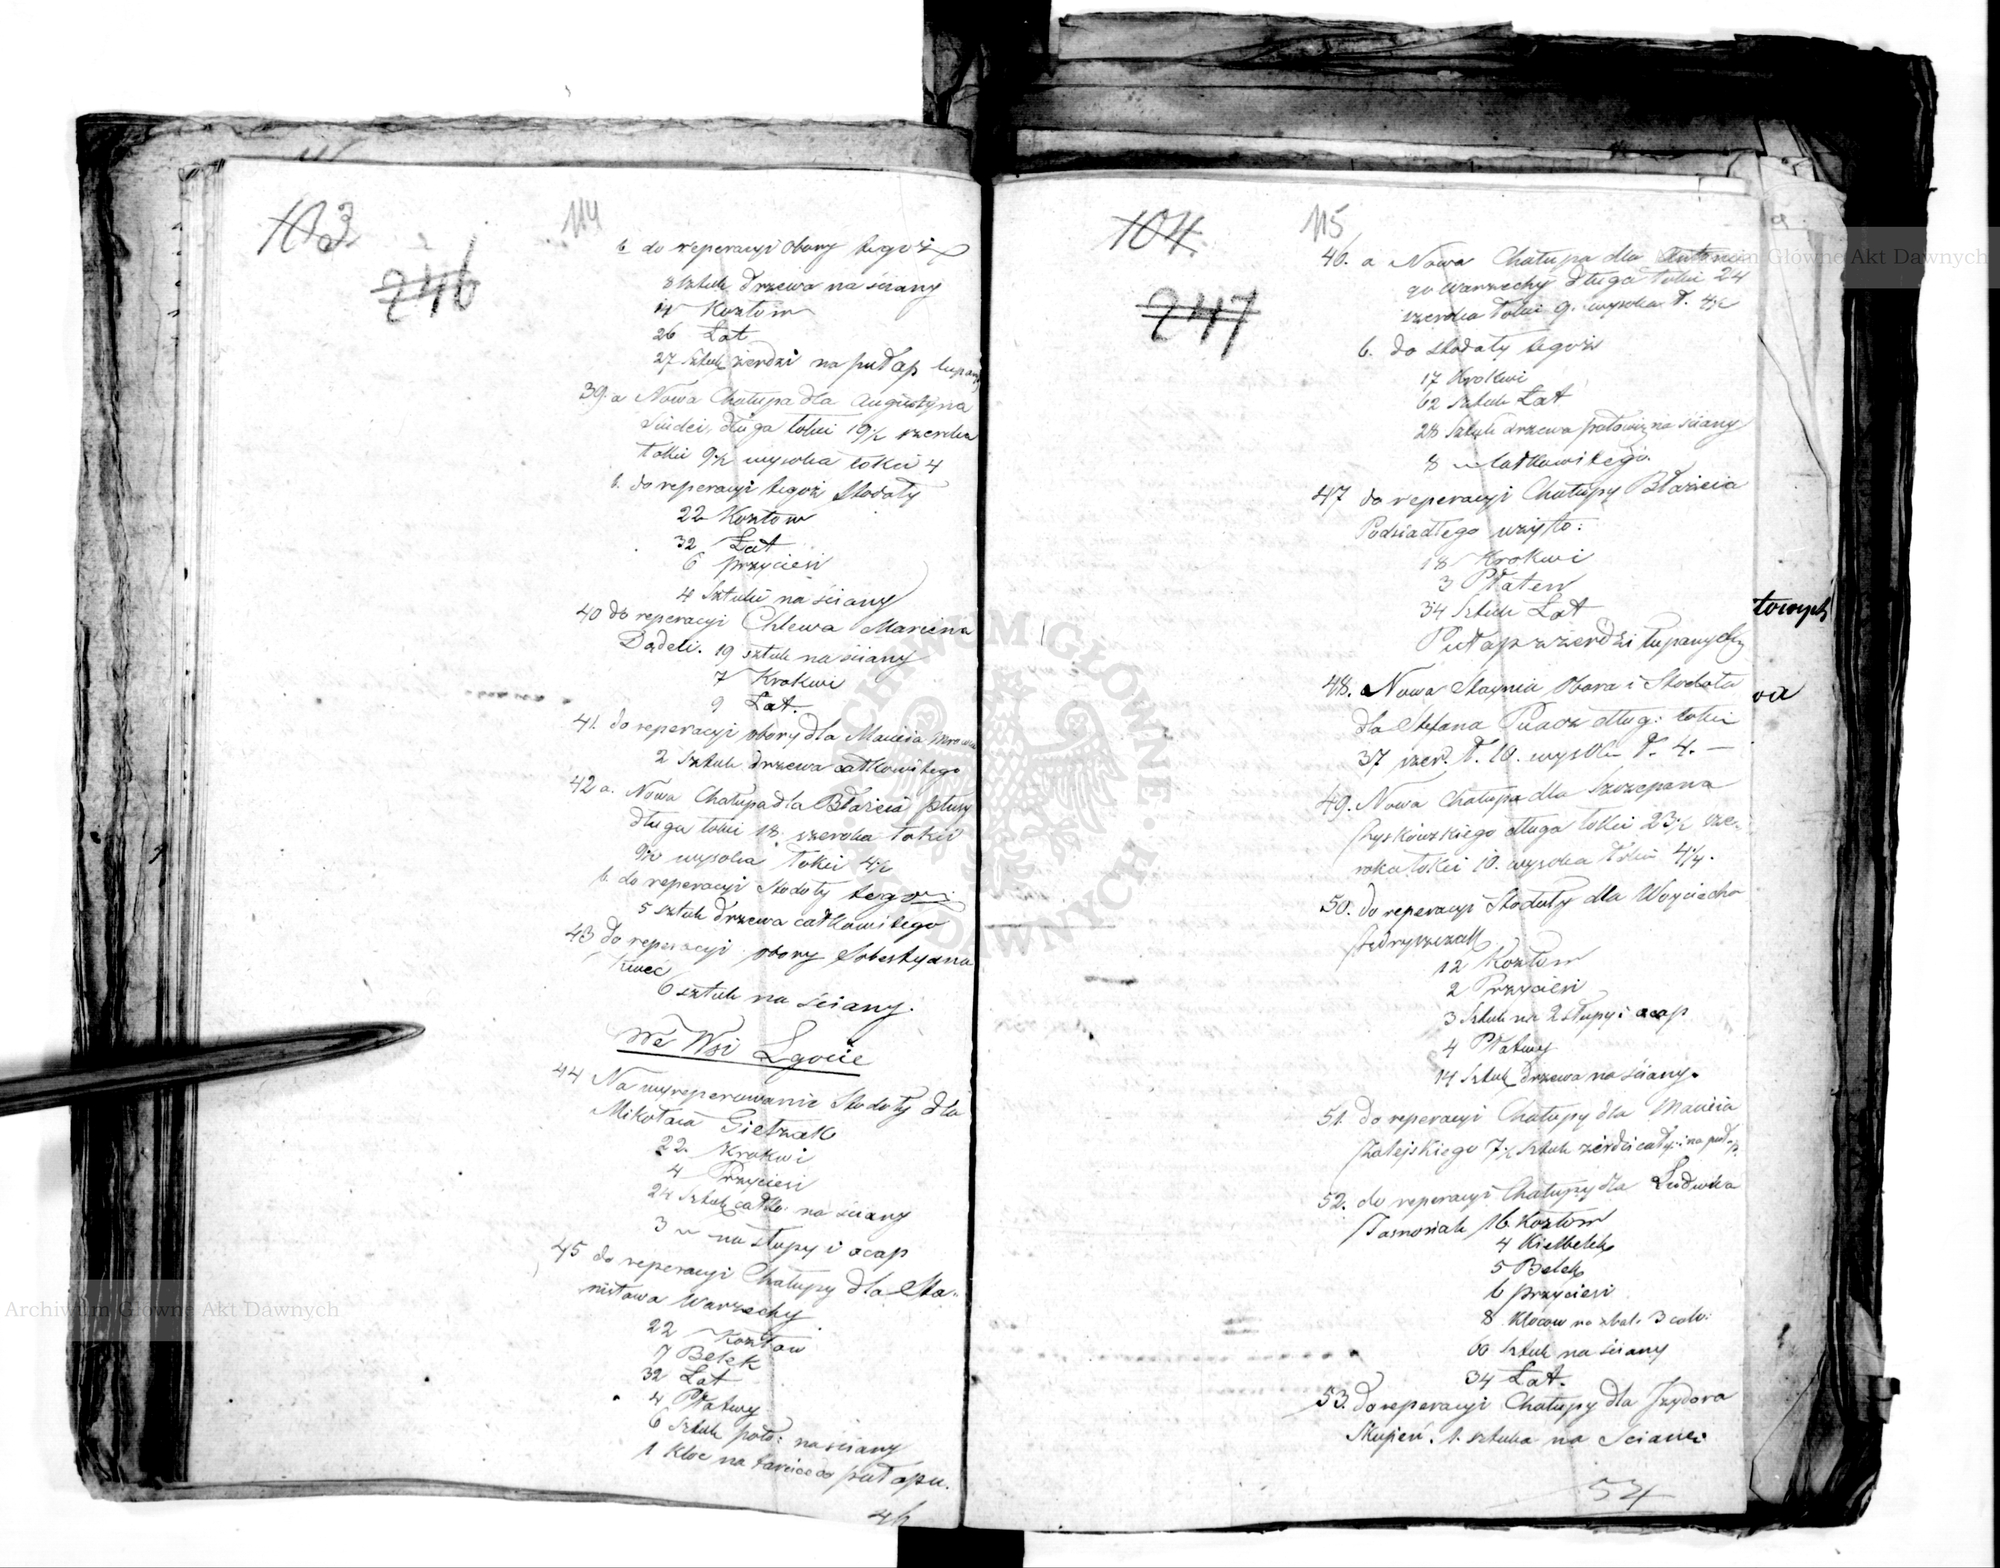 103
114
246
b. do reperacyi obory tegoż
8 sztuk drzewa na ściany
14 Kozłów
26 Łat
27 Sztuk żerdzi na pułap łupany
39. a Nowa Chałupa dla Augustyna
długa łokci 19½ szeroka
łokci 9½ wysoka łokci 4
b. do reperacyi tegoż Stodoły
22 Kozłow
32 Łat
6 przycieśi
4 Sztuki na ściany
40 do reperacyi Chlewa Marcina
Dądeli. 19 sztuk na ściany
7 Krokwi
9 Łat.
41. do reperacyi obory dla Macieia
2 Sztuk drzewa całkowitego
42 a. Nowa Chałupa dla Błażeia
długa łokci 18. szeroka łokci
9½ wysoka łokci 4½
b. do reperacyi Stodoły tegoż
5 sztuk drzewa całkowitego
43 do reperacyi obory Sebestyana
Kweć
6 sztuk na ściany.
We Wsi Lgocie
44 Na wyreperowanie Stodoły dla
Mikołaia Gietzak
22 Krokwi
4 Przycieśi
24 Sztuk całk: na ściany
3 " na słupy i ocap
45 do reperacyi Chałupy dla Sta-
nisława Warzechy
22 Kozłow
7 Belek
32 Łat
4 Płatwy
6 Sztuk poło: na ściany
1 Kloc na tarcice do pułapu.
46
104
115
247
46. a Nowa Chałupa dla Antonie
go Warzechy długa łokci 24
szeroka łokci 9. wysoka ł. 4½
b. do stodoły tegoż
17 Krokwi
62 Sztuk Łat
28 Sztuk drzewa na ściany
8 " całkowitego.
47 do reperacyi Chałupy Błażeia
Podsiadłego użyto:
18 Krokwi
3 Płatew
34 Sztuk Łat
Pułap z żerdzi łupanych
48. a Nowa Staynia Obora i Stodoła
dla Stefana Puacz dług: łokci
37 szer. ł. 10. wysok ł. 4. —
49. Nowa Chałupa dla Szczepana
długa łokci 23½ sze-
roka łokci 10. wysoka łokci 4¼.
50. do reperacyi Stodoły dla Woyciecha
Jędryszczak
12 Kozłow
2 Przycieśi
3 Sztuk na 2 słupy i ocap
4 Płatwy
14 Sztuk drzewa na ściany.
51. do reperacyi Chałupy dla Macieia
Zatejskiego 7½ Sztuk żerdzi całk: na pułap.
52. do reperacyi Chałupy dla Ludwika
16 Kozłow
4 Kielbelek
5 Belek
6 przycieśi
8 Klocow na 3 calo:
60 Sztuk na ściany
34 Łat.
53. do reperacyi Chałupy dla Jzydora
Skupień. 1. sztuka na Ścianę:
54
łowych
wa
Archiwum Główne Akt Dawnych
Archiwum Główne Akt Dawnych
ARCHIWUM GŁÓWNE AKT DAWNYCH